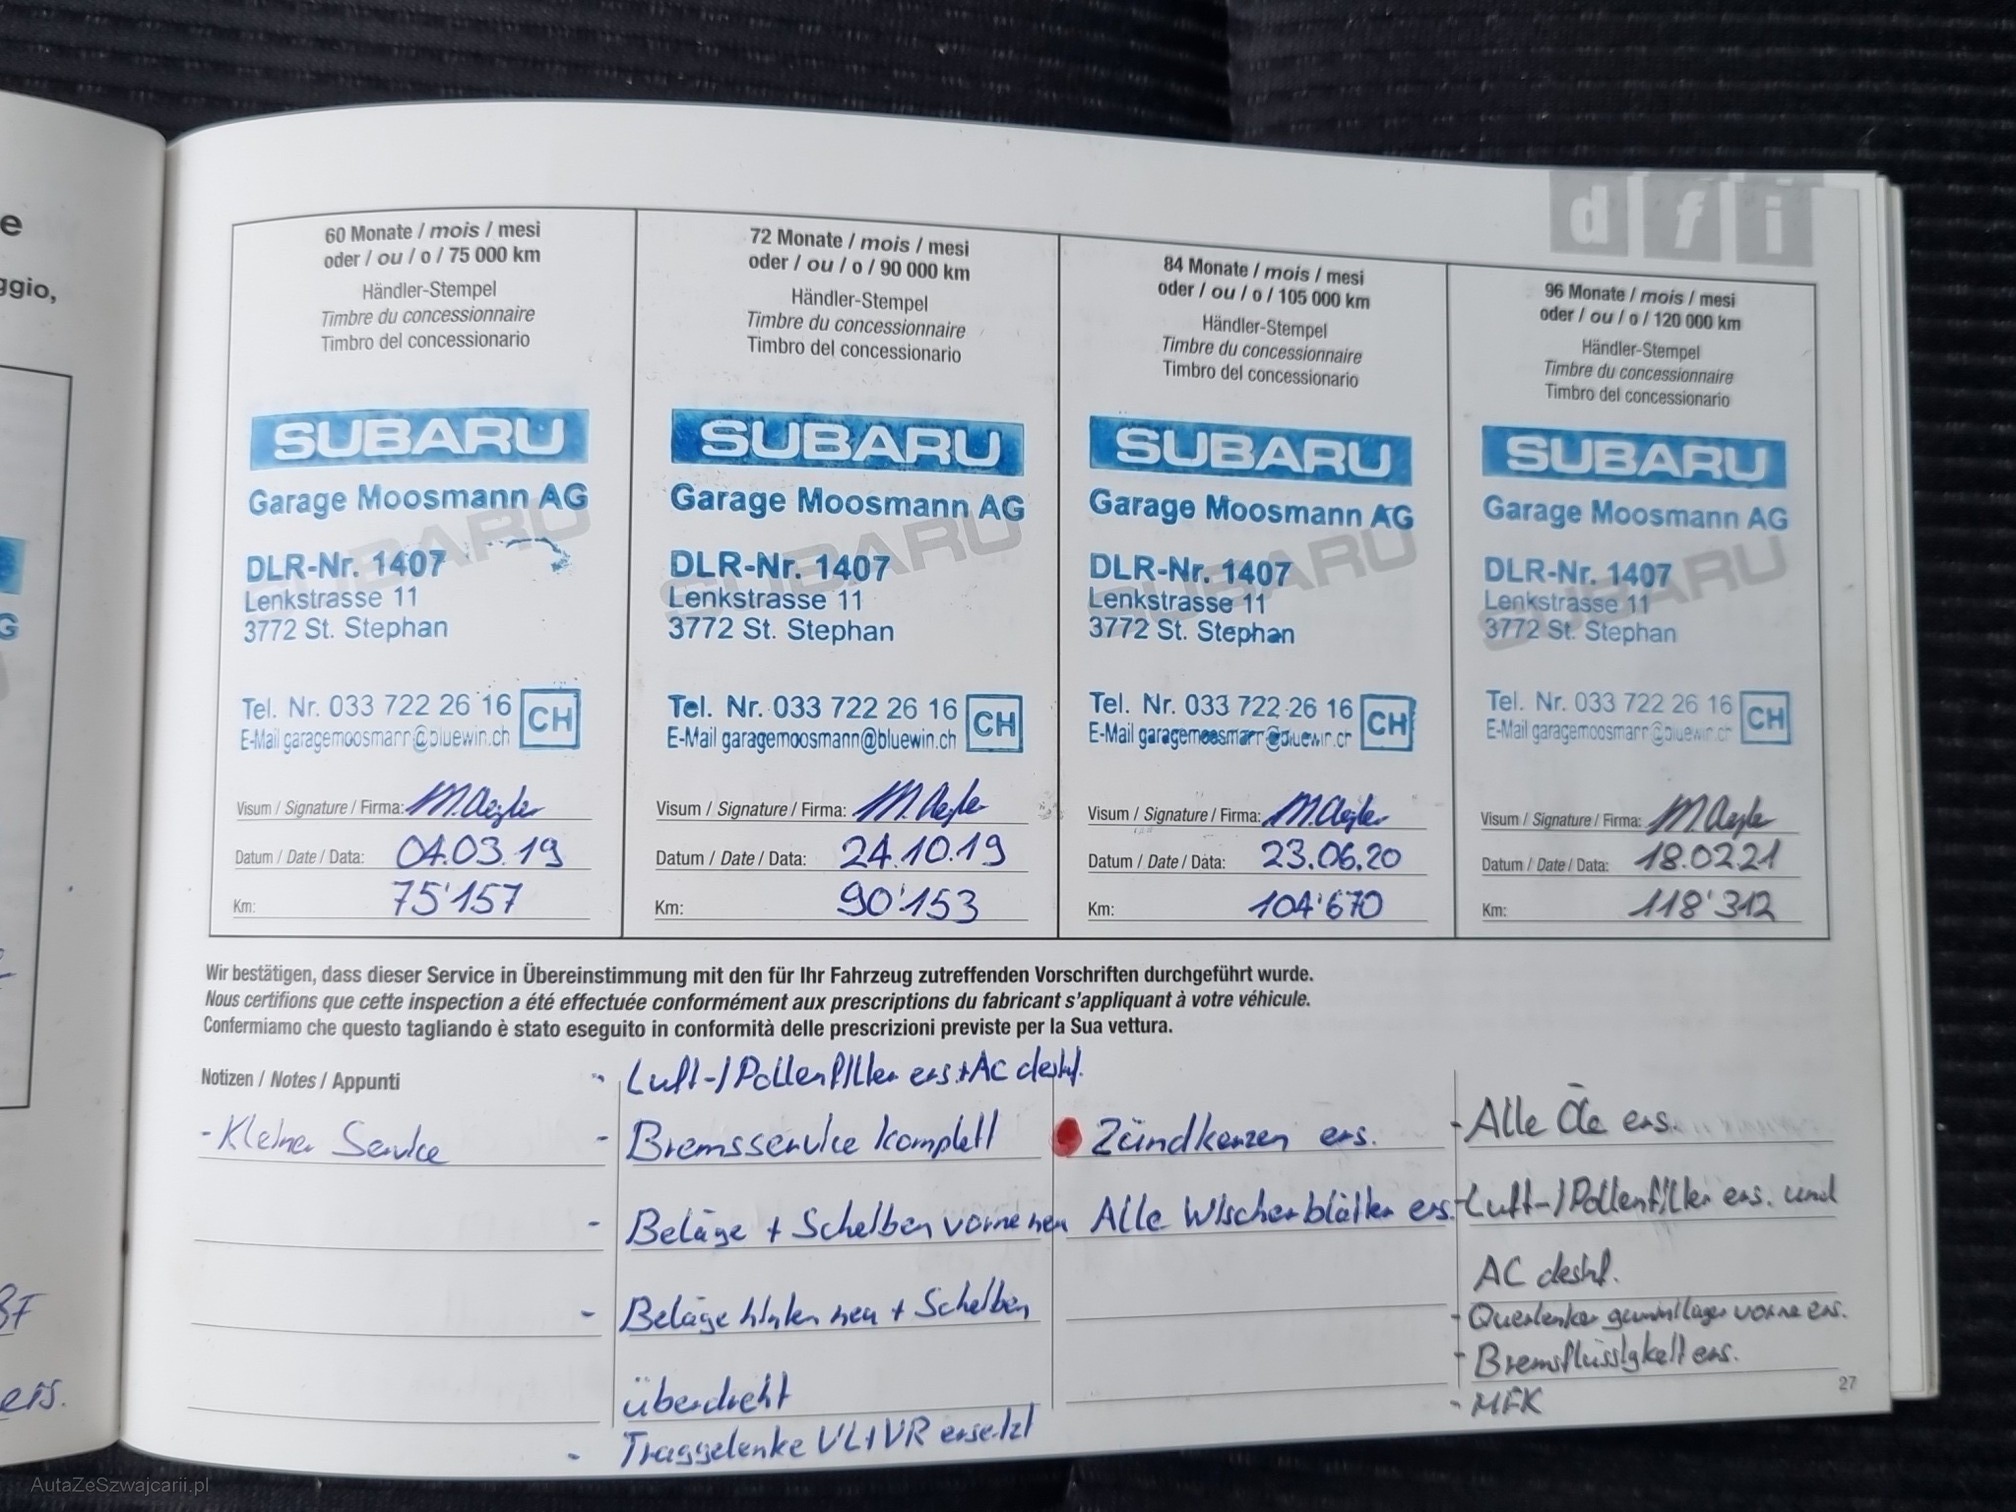 e
ggio,
G
ers.
d f i
60 Monate / mois / mesi
oder / ou / o / 75 000 km
Händler-Stempel
Timbre du concessionnaire
Timbro del concessionario
SUBARU
Garage Moosmann AG
SUBARU
DLR-Nr. 1407
Lenkstrasse 11
3772 St. Stephan
Tel. Nr. 033 722 26 16 CH
E-Mail garagemoosmann@bluewin.ch
Visum / Signature / Firma:
Datum / Date / Data: 04.03.19
Km: 75'157
72 Monate / mois / mesi
oder / ou / o / 90 000 km
Händler-Stempel
Timbre du concessionnaire
Timbro del concessionario
SUBARU
Garage Moosmann AG
SUBARU
DLR-Nr. 1407
Lenkstrasse 11
3772 St. Stephan
Tel. Nr. 033 722 26 16 CH
E-Mail garagemoosmann@bluewin.ch
Visum / Signature / Firma:
Datum / Date / Data: 24.10.19
Km: 90'153
84 Monate / mois / mesi
oder / ou / o / 105 000 km
Händler-Stempel
Timbre du concessionnaire
Timbro del concessionario
SUBARU
Garage Moosmann AG
SUBARU
DLR-Nr. 1407
Lenkstrasse 11
3772 St. Stephan
Tel. Nr. 033 722 26 16 CH
E-Mail garagemoosmann@bluewin.ch
Visum / Signature / Firma:
Datum / Date / Data: 23.06.20
Km: 104'670
96 Monate / mois / mesi
oder / ou / o / 120 000 km
Händler-Stempel
Timbre du concessionnaire
Timbro del concessionario
SUBARU
Garage Moosmann AG
SUBARU
DLR-Nr. 1407
Lenkstrasse 11
3772 St. Stephan
Tel. Nr. 033 722 26 16 CH
E-Mail garagemoosmann@bluewin.ch
Visum / Signature / Firma:
Datum / Date / Data: 18.02.21
Km: 118'312
Wir bestätigen, dass dieser Service in Übereinstimmung mit den für Ihr Fahrzeug zutreffenden Vorschriften durchgeführt wurde.
Nous certifions que cette inspection a été effectuée conformément aux prescriptions du fabricant s'appliquant à votre véhicule.
Confermiamo che questo tagliando è stato eseguito in conformità delle prescrizioni previste per la Sua vettura.
Notizen / Notes / Appunti
- Kleiner Service
- Luft-/Pollenfilter ers.+AC desinf.
- Bremsservice komplett
- Beläge + Scheiben vorne neu
- Beläge hinten neu + Scheiben
überdreht
- Traggelenke VL+VR ersetzt
Zündkerzen ers.
Alle Wischerblätter ers.
- Alle Öle ers.
- Luft-/Pollenfilter ers. und
AC desinf.
- Querlenker gummilager vorne ers.
- Bremsflüssigkeit ers.
- MFK
27
AutaZeSzwajcarii.pl